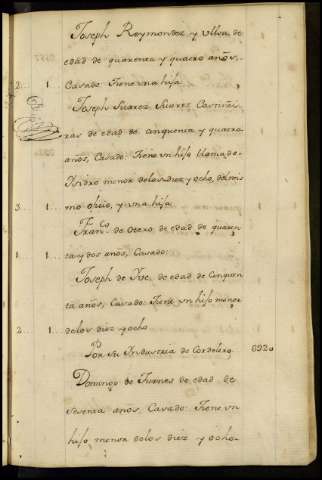 Joseph Reymondez y Ulloa de
edad de quarenta y quatro años,
2... 1... Casado: Tiene una hija
Joseph Suarez Suarez
ras de edad de cinquenta y quatro
años, Casado: Tiene un hijo llamado
Isidro menor delos diez y ocho, del mis
3... 1... mo oficio, y una hija
Franco. de Otero de edad de quaren
1... 1... ta y dos años, Casado:
Joseph de de edad de Cinquen
ta años, Casado: Tiene un hijo menor
2... 1... delos diez y ocho
Por su Industria de Cordelero
Domingo de Furnes de edad de
sesenta años, Casado: Tiene un
hijo menor delos diez y ocho